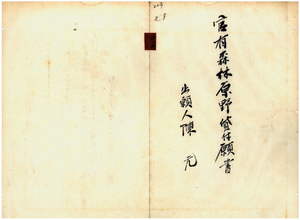 官有森林原野貸付願書
出願人陳 光